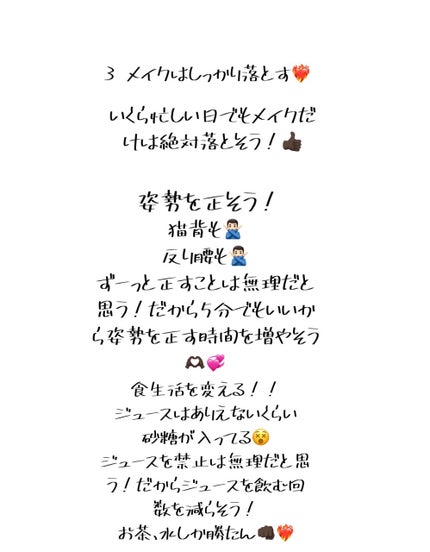 3 メイクはしっかり落とす❤️‍🔥
いくら忙しい日でもメイクだ
けは絶対落とそう！👍🏿
姿勢を正そう！
猫背も🙅🏻‍♂️
反り腰も🙅🏻‍♂️
ずーっと正すことは無理だと
思う！だから5分でもいいか
ら姿勢を正す時間を増やそう
🫶🏿💞
食生活を変える！！
ジュースはありえないくらい
砂糖が入ってる😵
ジュースを禁止は無理だと思
う！だからジュースを飲む回
数を減らそう！
お茶、水しか勝たん👊🏿❤️‍🔥